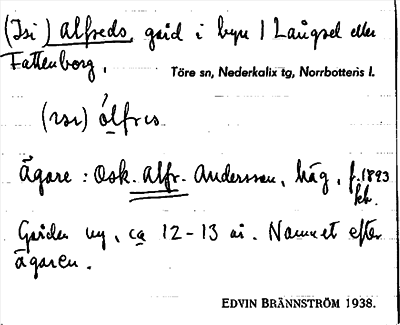 (Isi) Alfreds gård i byn I Långsel eller
Fattenborg.
Töre sn, Nederkalix tg, Norrbottens l.
Ägare: Osk. Alfr. Andersson, häg, f. 1893
Gården ny, ca 12-13 år. Namnet efter
ägaren.
EDVIN BRÄNNSTRÖM 1938.